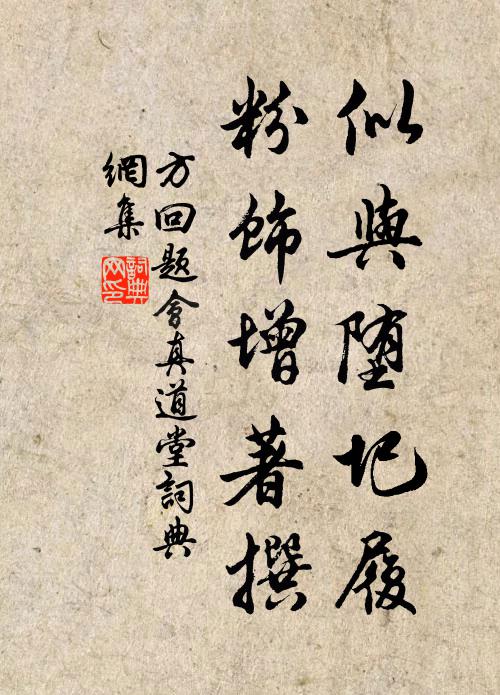 似與堕圮履
粉飾增著撰
方回題會真道堂詞典
網集
詞典網印